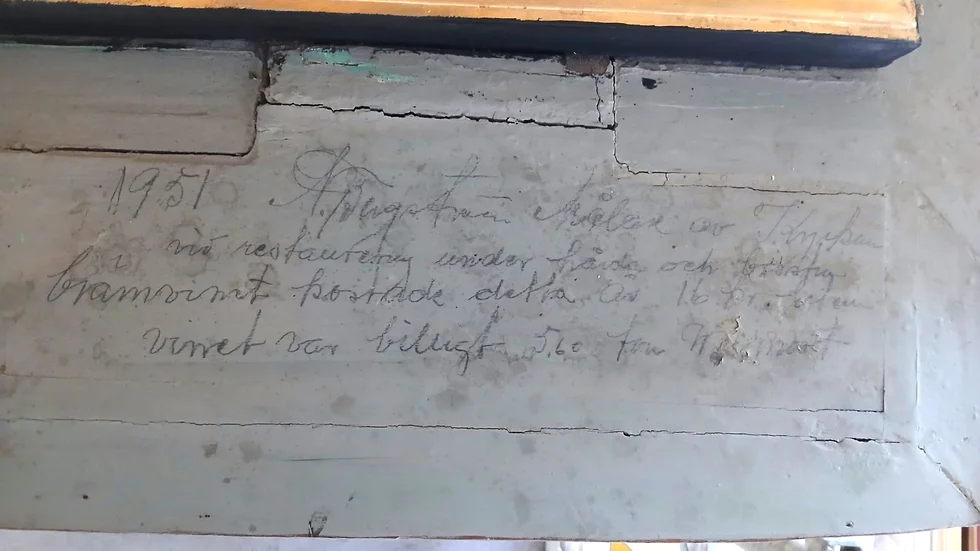 1951 A. Bergström Målar av Kyrkan
vid restaurering under hårda och
brämvinet kostade detta år 16 kr.
vinet var billigt 5.60 för